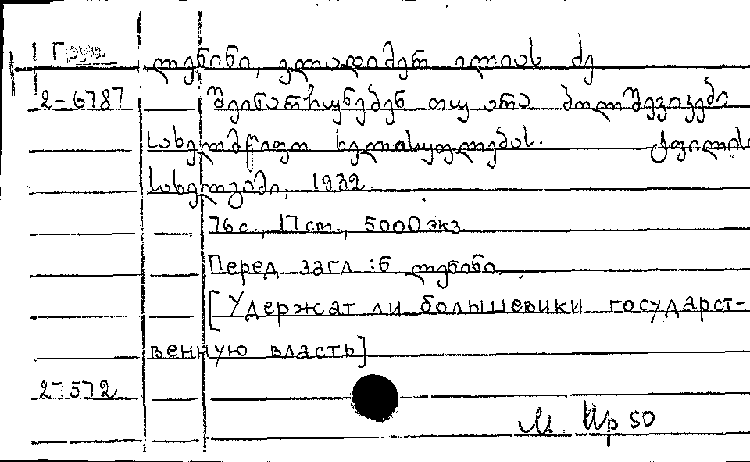 Груз ლენინი, ვლადიმერ ილიას ძე
2-6787 შეინარჩუნებენ თუ არა ბოლშევიკები
სახელმწიფო ხელისუფლებას.
სახელგამი, 1932.
76 с., 17 cm, 5000 экз
Перед загл.: ნ ლენინი
[Удержат ли большевики государст-
венную власть]
27572